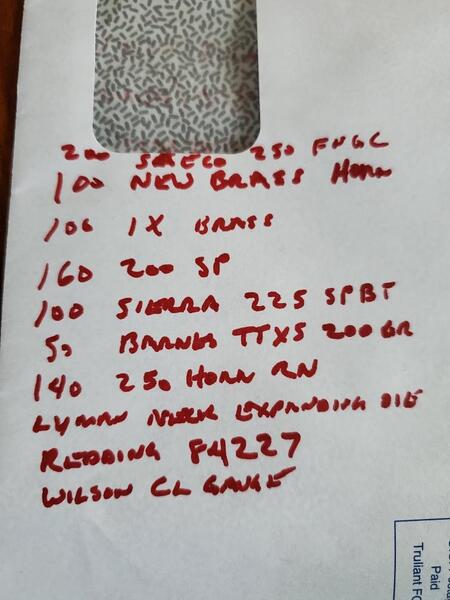 200 SAECO 250 FNGC
100 NEW BRASS HORN
100 1X BRASS
160 200 SP
100 SIERRA 225 SPBT
50 BARNES TTXS 200 GR
140 250 HORN RN
LYMAN NECK EXPANDING DIE
REDDING F4227
WILSON CL GAUGE
Paid
Truliant FC